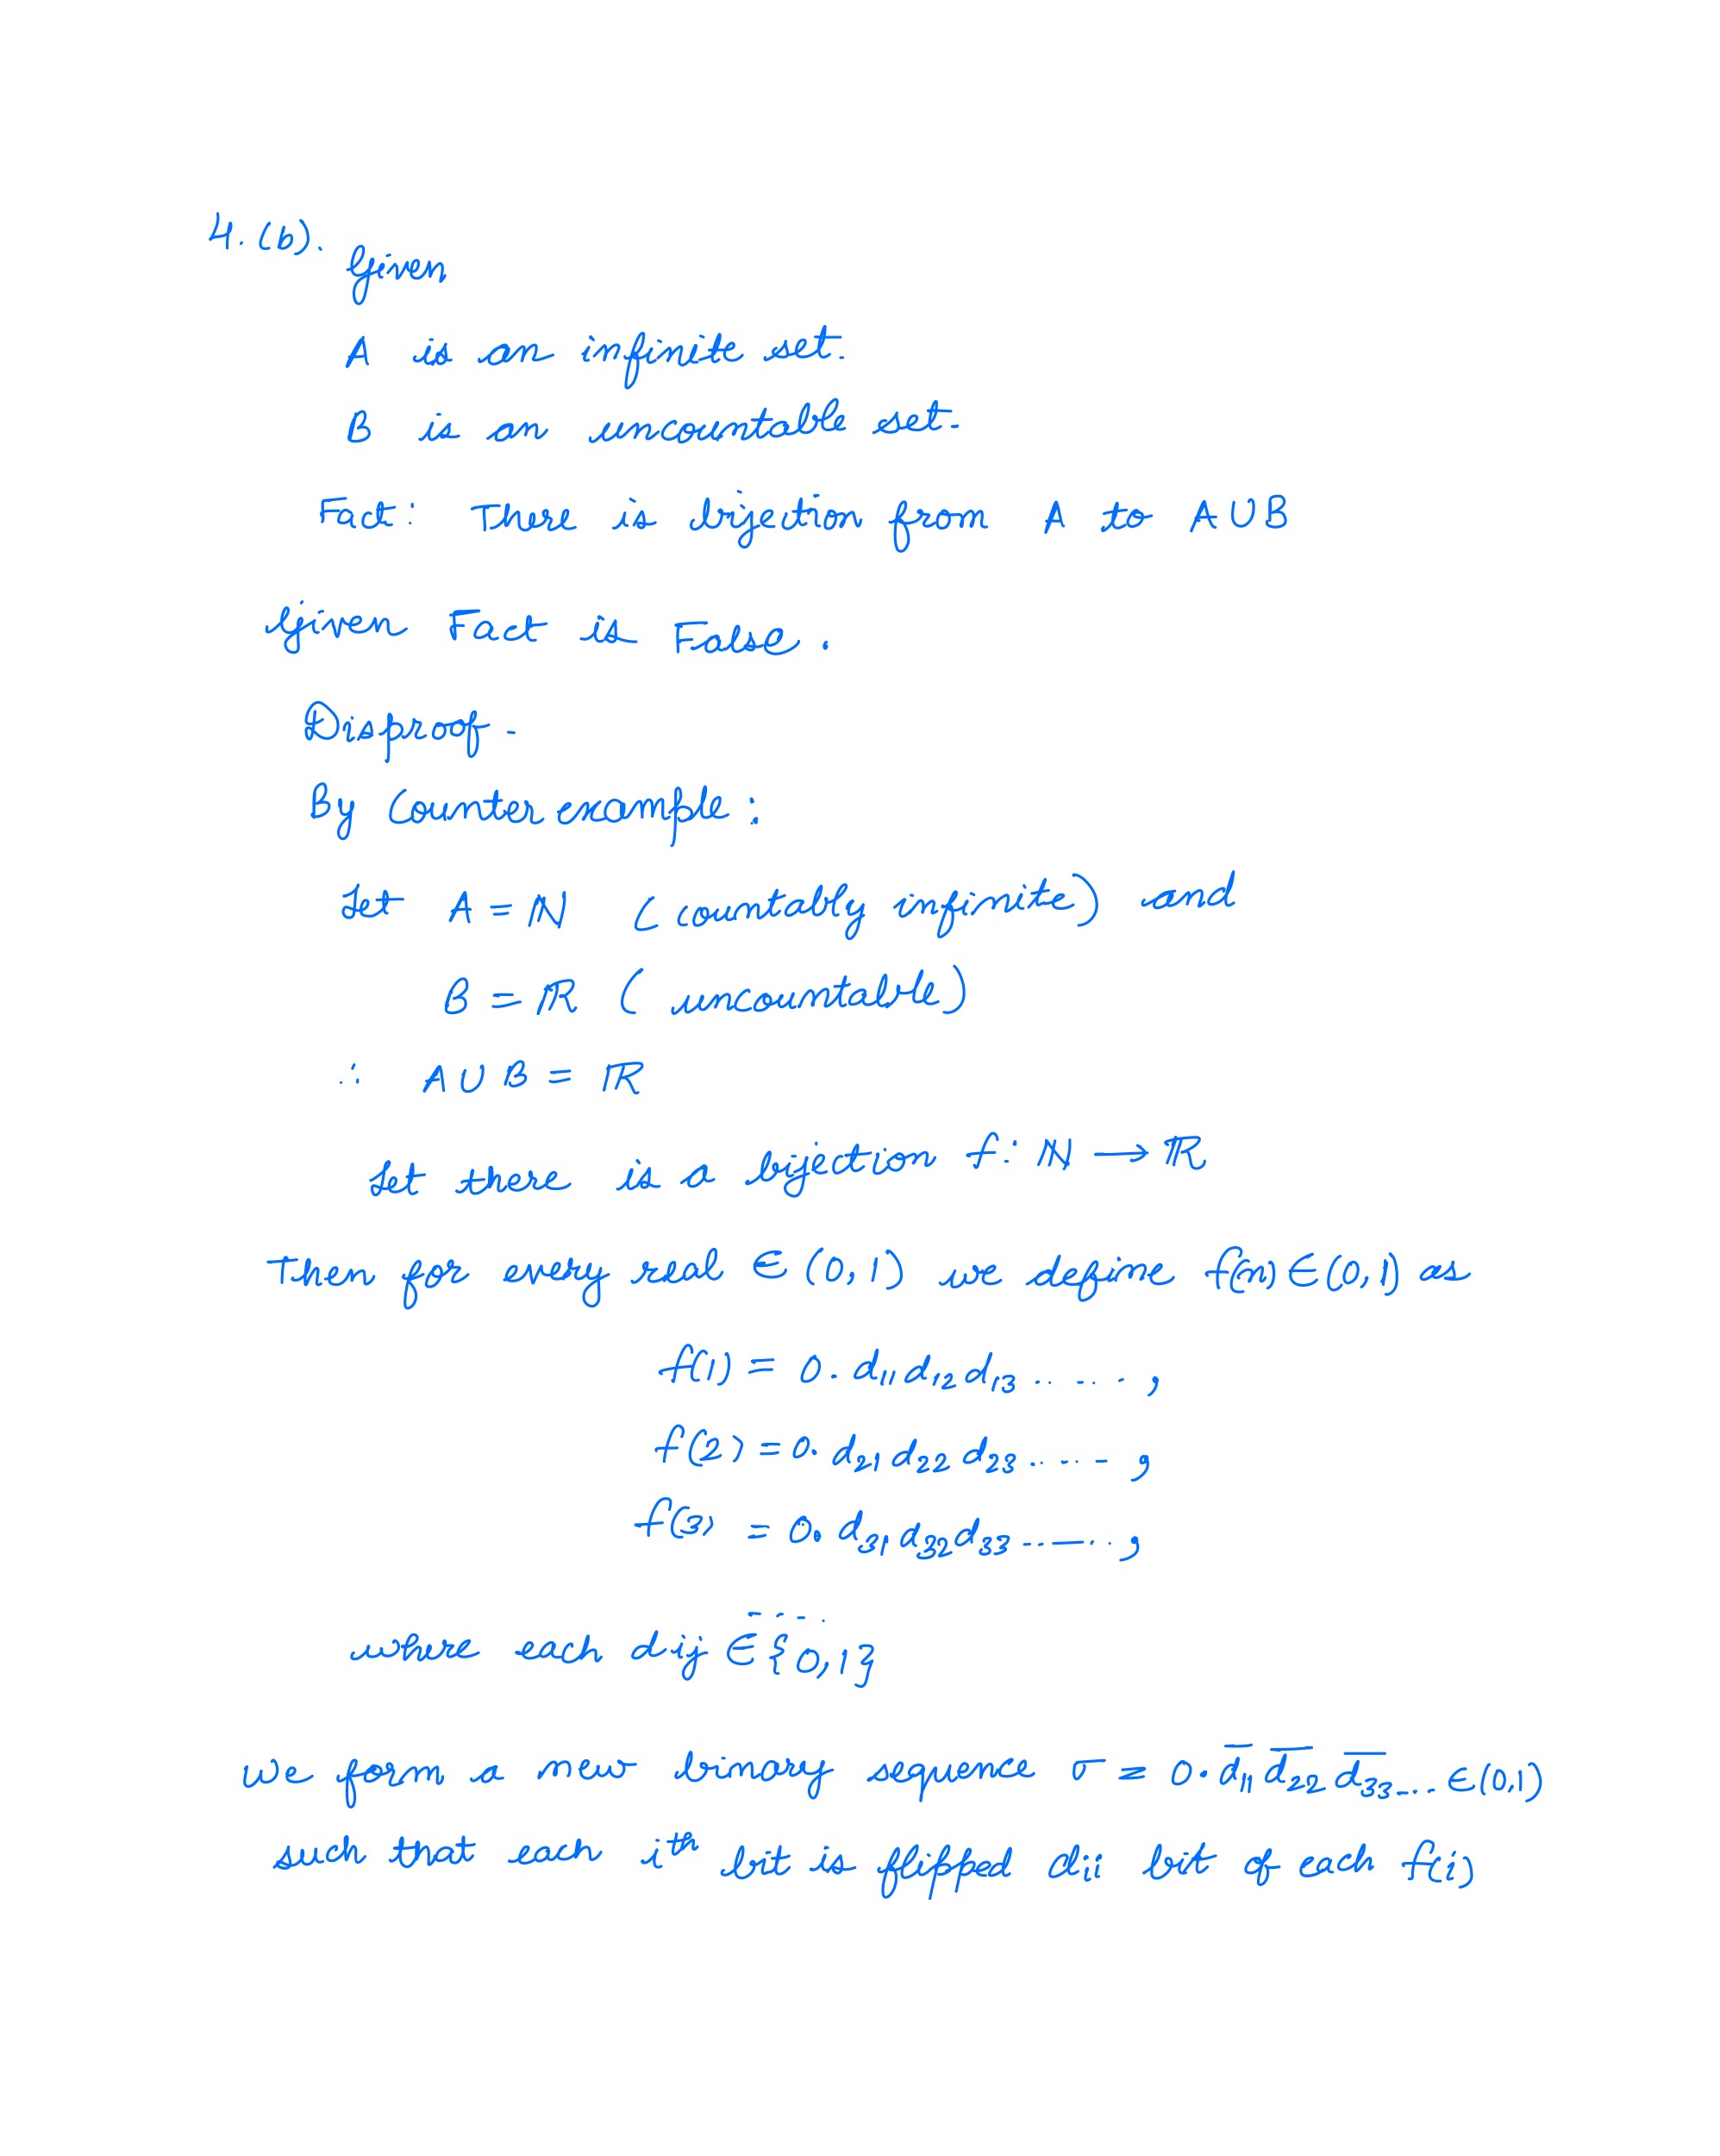 4. (b).
Given
A is an infinite set.
B is an uncountable set.
Fact: There is bijection from A to A ∪ B
Given Fact is False.
Disproof -
By Counter example:
Let A = ℕ (countably infinite) and
B = ℝ (uncountable)
∴ A ∪ B = ℝ
Let there is a bijection f: ℕ → ℝ
Then for every real ∈ (0,1) we define f(n) ∈ (0,1) as
f(1) = 0. d₁₁ d₁₂ d₁₃ ......,
f(2) = 0. d₂₁ d₂₂ d₂₃ ......,
f(3) = 0. d₃₁ d₃₂ d₃₃ ......,
....
where each dij ∈ {0,1}
we form a new binary sequence σ = 0. d̅₁₁ d̅₂₂ d̅₃₃ .... ∈ (0,1)
such that each iᵗʰ bit is flipped dii bit of each f(i)